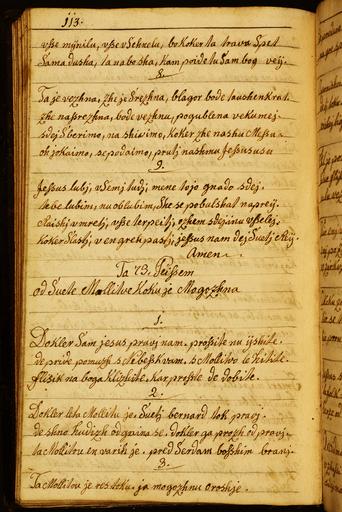 113.
vsse mynilu, vsse vsekuelu, bo kokor ta trava spet
sama duska, ta na bo ska, kam poide tu sam bog veij.
8.
Ta je vezhna, zhe je srezhna, blagor bode taushenkrat.
zhe nasrezhna, bode vezhna, pogublena vekumej.
sdej sberimo, na shivimo, koker zhe nashu Messu.
oh jokaimo, se podaimo, prutj nashmu Jessususu
9.
Jessus lubj, vsem tudj, mene tojo gnado sdej.
tebe lubim, nu oblubim, she se pobulshat naprej.
Raishj vmretj, vsse terpeitj, vsselej.
koker slastj, v en grek pastj, jessus nam dej svetj Raj.
Amen.
Ta 73. Peissem
od svete Mollitve koku je Mogozhna
1.
Dokler sam jesus pravj nam. prossite nu ijshite.
de pride pomuzh s Nebess k vam. s Mollitvo le hitite.
flissik na boga klizhite. kar prossite de dobite.
2.
Dokler leta Mollitu je. svetj bernard tok pravj.
de shna hudizh od govina se. dokler ga prozh od pravj.
ta Mollitou en varih je. pred serdam bosshim branj.
3.
Ta Mollitou je res toku. ja mogozhnu oroshje.